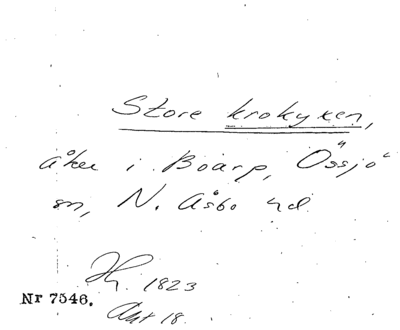 Store krokyxen,
åker i Boarp, Össjö
sn, N. Åsbo hd.
Hy. 1823
Nr 7546.
Akt 18.